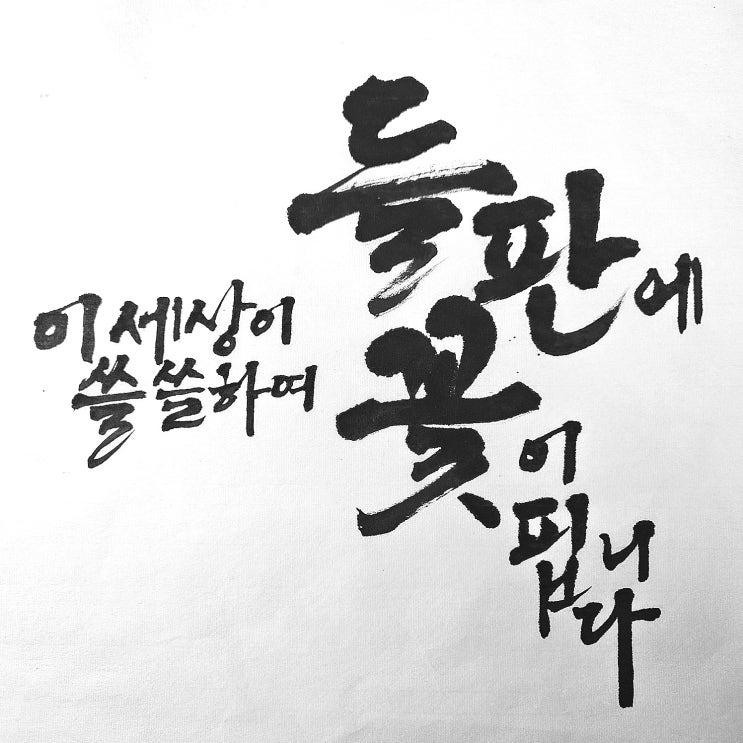 이 세상이
쓸쓸하여
들판에
꽃이
핍니다